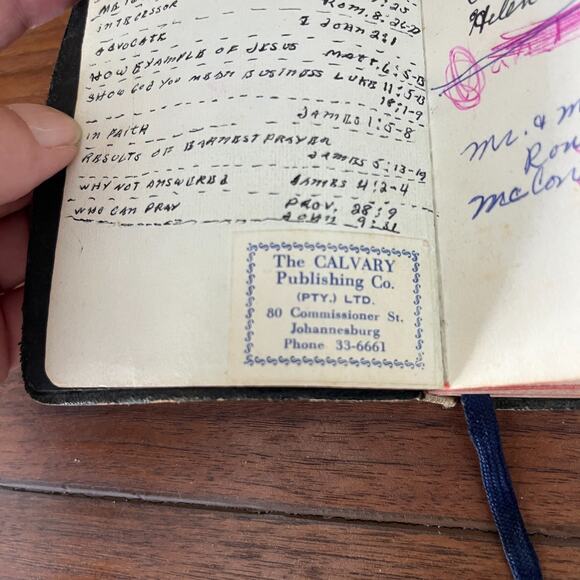 :25
INTERCESSOR ROM. 8:26-D
ADVOCATE I JOHN 2:1
HOW EXAMPLE OF JESUS MATT. 6:5-13
SHOW GOD YOU MEAN BUSINESS LUKE 11:5-13
18:1-9
IN FAITH JAMES 1:5-8
RESULTS OF EARNEST PRAYER
JAMES 5:13-19
WHY NOT ANSWERED JAMES 4:2-4
WHO CAN PRAY PROV. 28:9
JOHN 9:31
The CALVARY
Publishing Co.
(PTY.) LTD.
80 Commissioner St.
Johannesburg
Phone 33-6661
Helen
Mr. & M
Ron
McCon